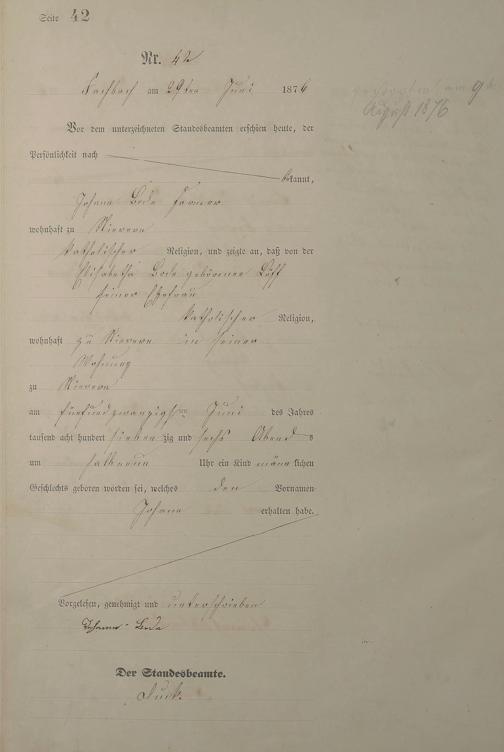 Seite 42
Nr. 42
Fachbach am 29ten Juni 1876
gestorben am 9ten
August 1876
Vor dem unterzeichneten Standesbeamten erschien heute, der
Persönlichkeit nach
bekannt,
Johann Bode
wohnhaft zu Nievern
katholischer Religion, und zeigte an, daß von der
Elisabetha Bode geborenen
seiner Ehefrau
katholischer Religion,
wohnhaft zu Nievern in seiner
Wohnung
zu Nievern
am fünfundzwanzigsten Juni des Jahres
tausend acht hundert siebenzig und sechs Abends
um halbneun Uhr ein Kind männlichen
Geschlechts geboren worden sei, welches den Vornamen
Johann erhalten habe.
Vorgelesen, genehmigt und unterschrieben
Johann Bode
Der Standesbeamte.